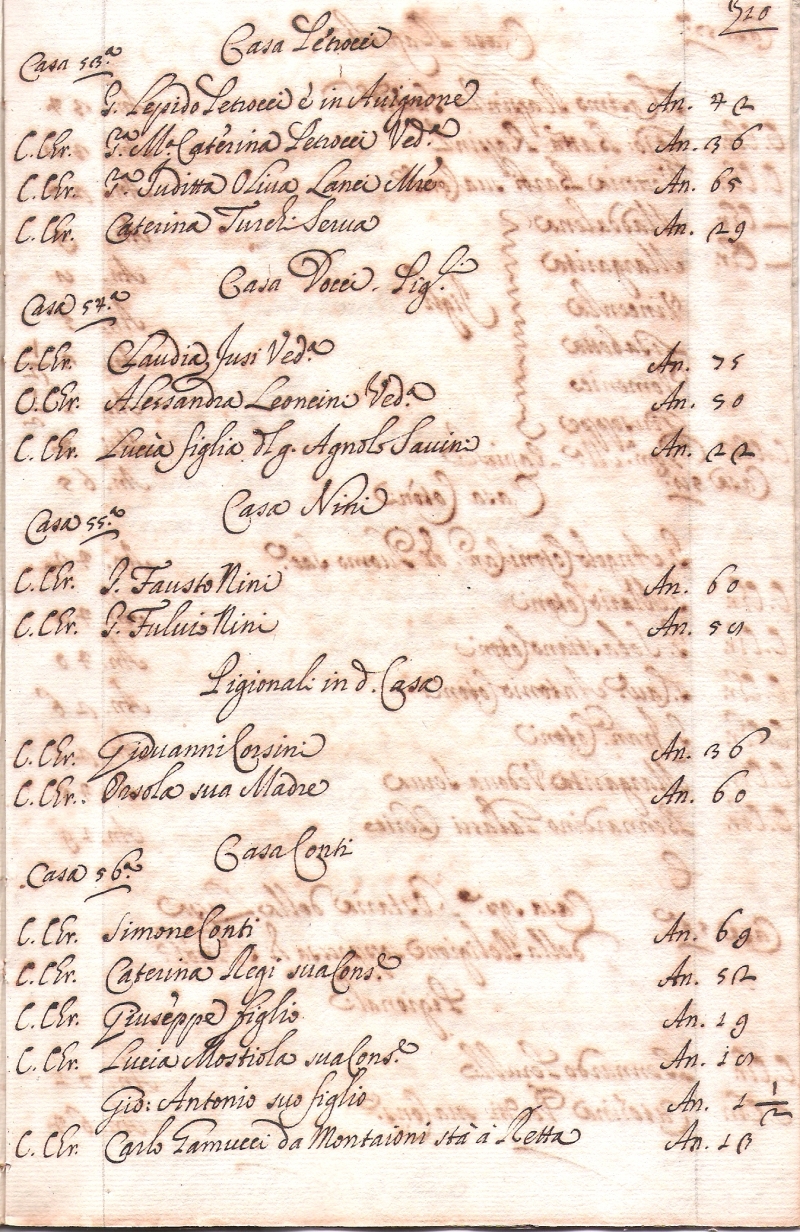 510
Casa Petrocci
Casa 53.a
S. Lepido Petrocci è in Auignone An. 42
C. Chr. S.a M.a Caterina Petrocci Ved.a An. 36
C. Chr. S.a Giuditta Oliua Lanci Mre An. 65
C. Chr. Caterina Turchi Serua An. 29
Casa Docci Pig.li
Casa 54.a
C. Chr. Claudia Jusi Ved.a An. 75
C. Chr. Alessandra Leoncini Ved.a An. 50
C. Chr. Lucia figlia d'lg. Agnolo Sauini An. 22
Casa Nini
Casa 55.a
C. Chr. S. Fausto Nini An. 60
C. Chr. S. Fuluio Nini An. 55
Pigionali in d. Casa
C. Chr. Giouanni Corsini An. 36
C. Chr. Orsola sua Madre An. 60
Casa Conti
Casa 56.a
C. Chr. Simone Conti An. 69
C. Chr. Caterina Regi sua Cons.e An. 52
C. Chr. Giuseppe figlio An. 19
C. Chr. Lucia Mostiola sua Cons.e An. 15
Gio: Antonio suo figlio An. 1 1/2
C. Chr. Carlo Gamucci da Montaioni stà à Retta An. 13